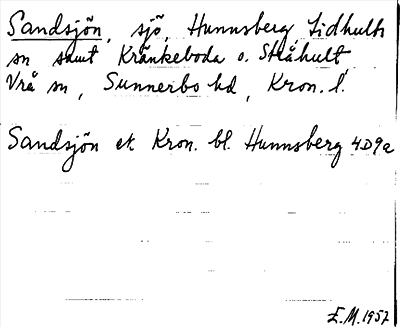 Sandsjön, sjö, Hunnsberg Lidhults
sn samt Kränkeboda o. Stråhult
Vrå sn, Sunnerbo hd, Kron. l.
Sandsjön ek Kron. bl. Hunnsberg 4D9a
E.M. 1957